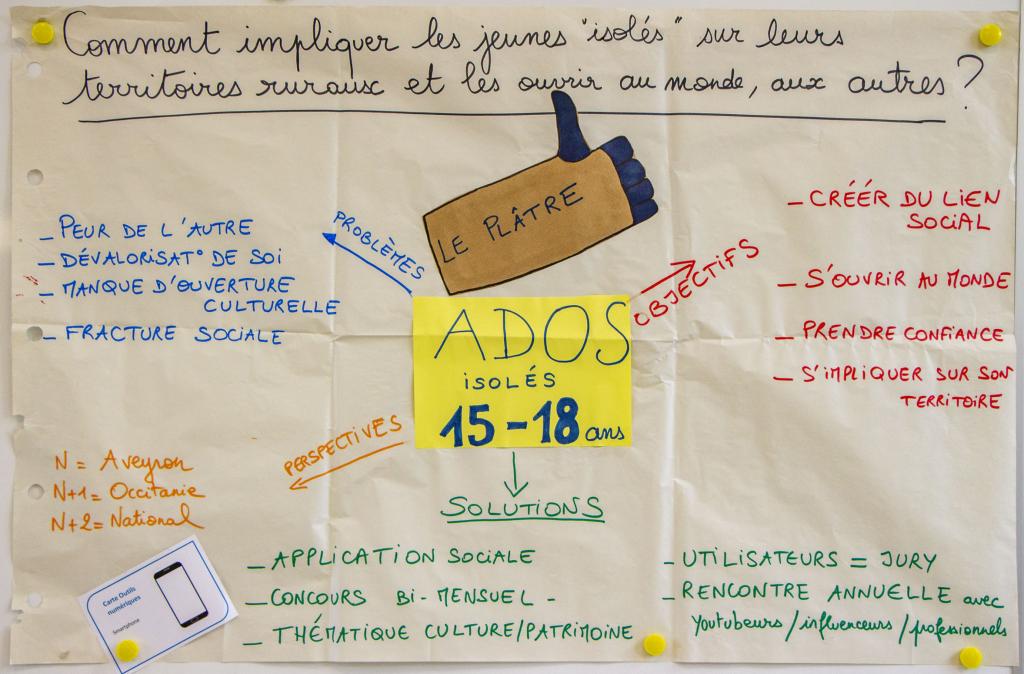 Comment impliquer les jeunes "isolés" sur leurs
territoires ruraux et les ouvrir au monde, aux autres ?
LE PLÂTRE
PROBLÈMES
_ PEUR DE L'AUTRE
_ DÉVALORISAT° DE SOI
_ MANQUE D'OUVERTURE
CULTURELLE
_ FRACTURE SOCIALE
OBJECTIFS
_ CRÉÉR DU LIEN
SOCIAL
_ S'OUVRIR AU MONDE
_ PRENDRE CONFIANCE
_ S'IMPLIQUER SUR SON
TERRITOIRE
ADOS
ISOLÉS
15-18 ans
PERSPECTIVES
N = Aveyron
N+1 = Occitanie
N+2 = National
SOLUTIONS
_ APPLICATION SOCIALE
_ CONCOURS BI-MENSUEL -
_ THÉMATIQUE CULTURE/PATRIMOINE
_ UTILISATEURS = JURY
_ RENCONTRE ANNUELLE avec
Youtubeurs/influenceurs/professionnels
Carte Outils
numériques
Smartphone